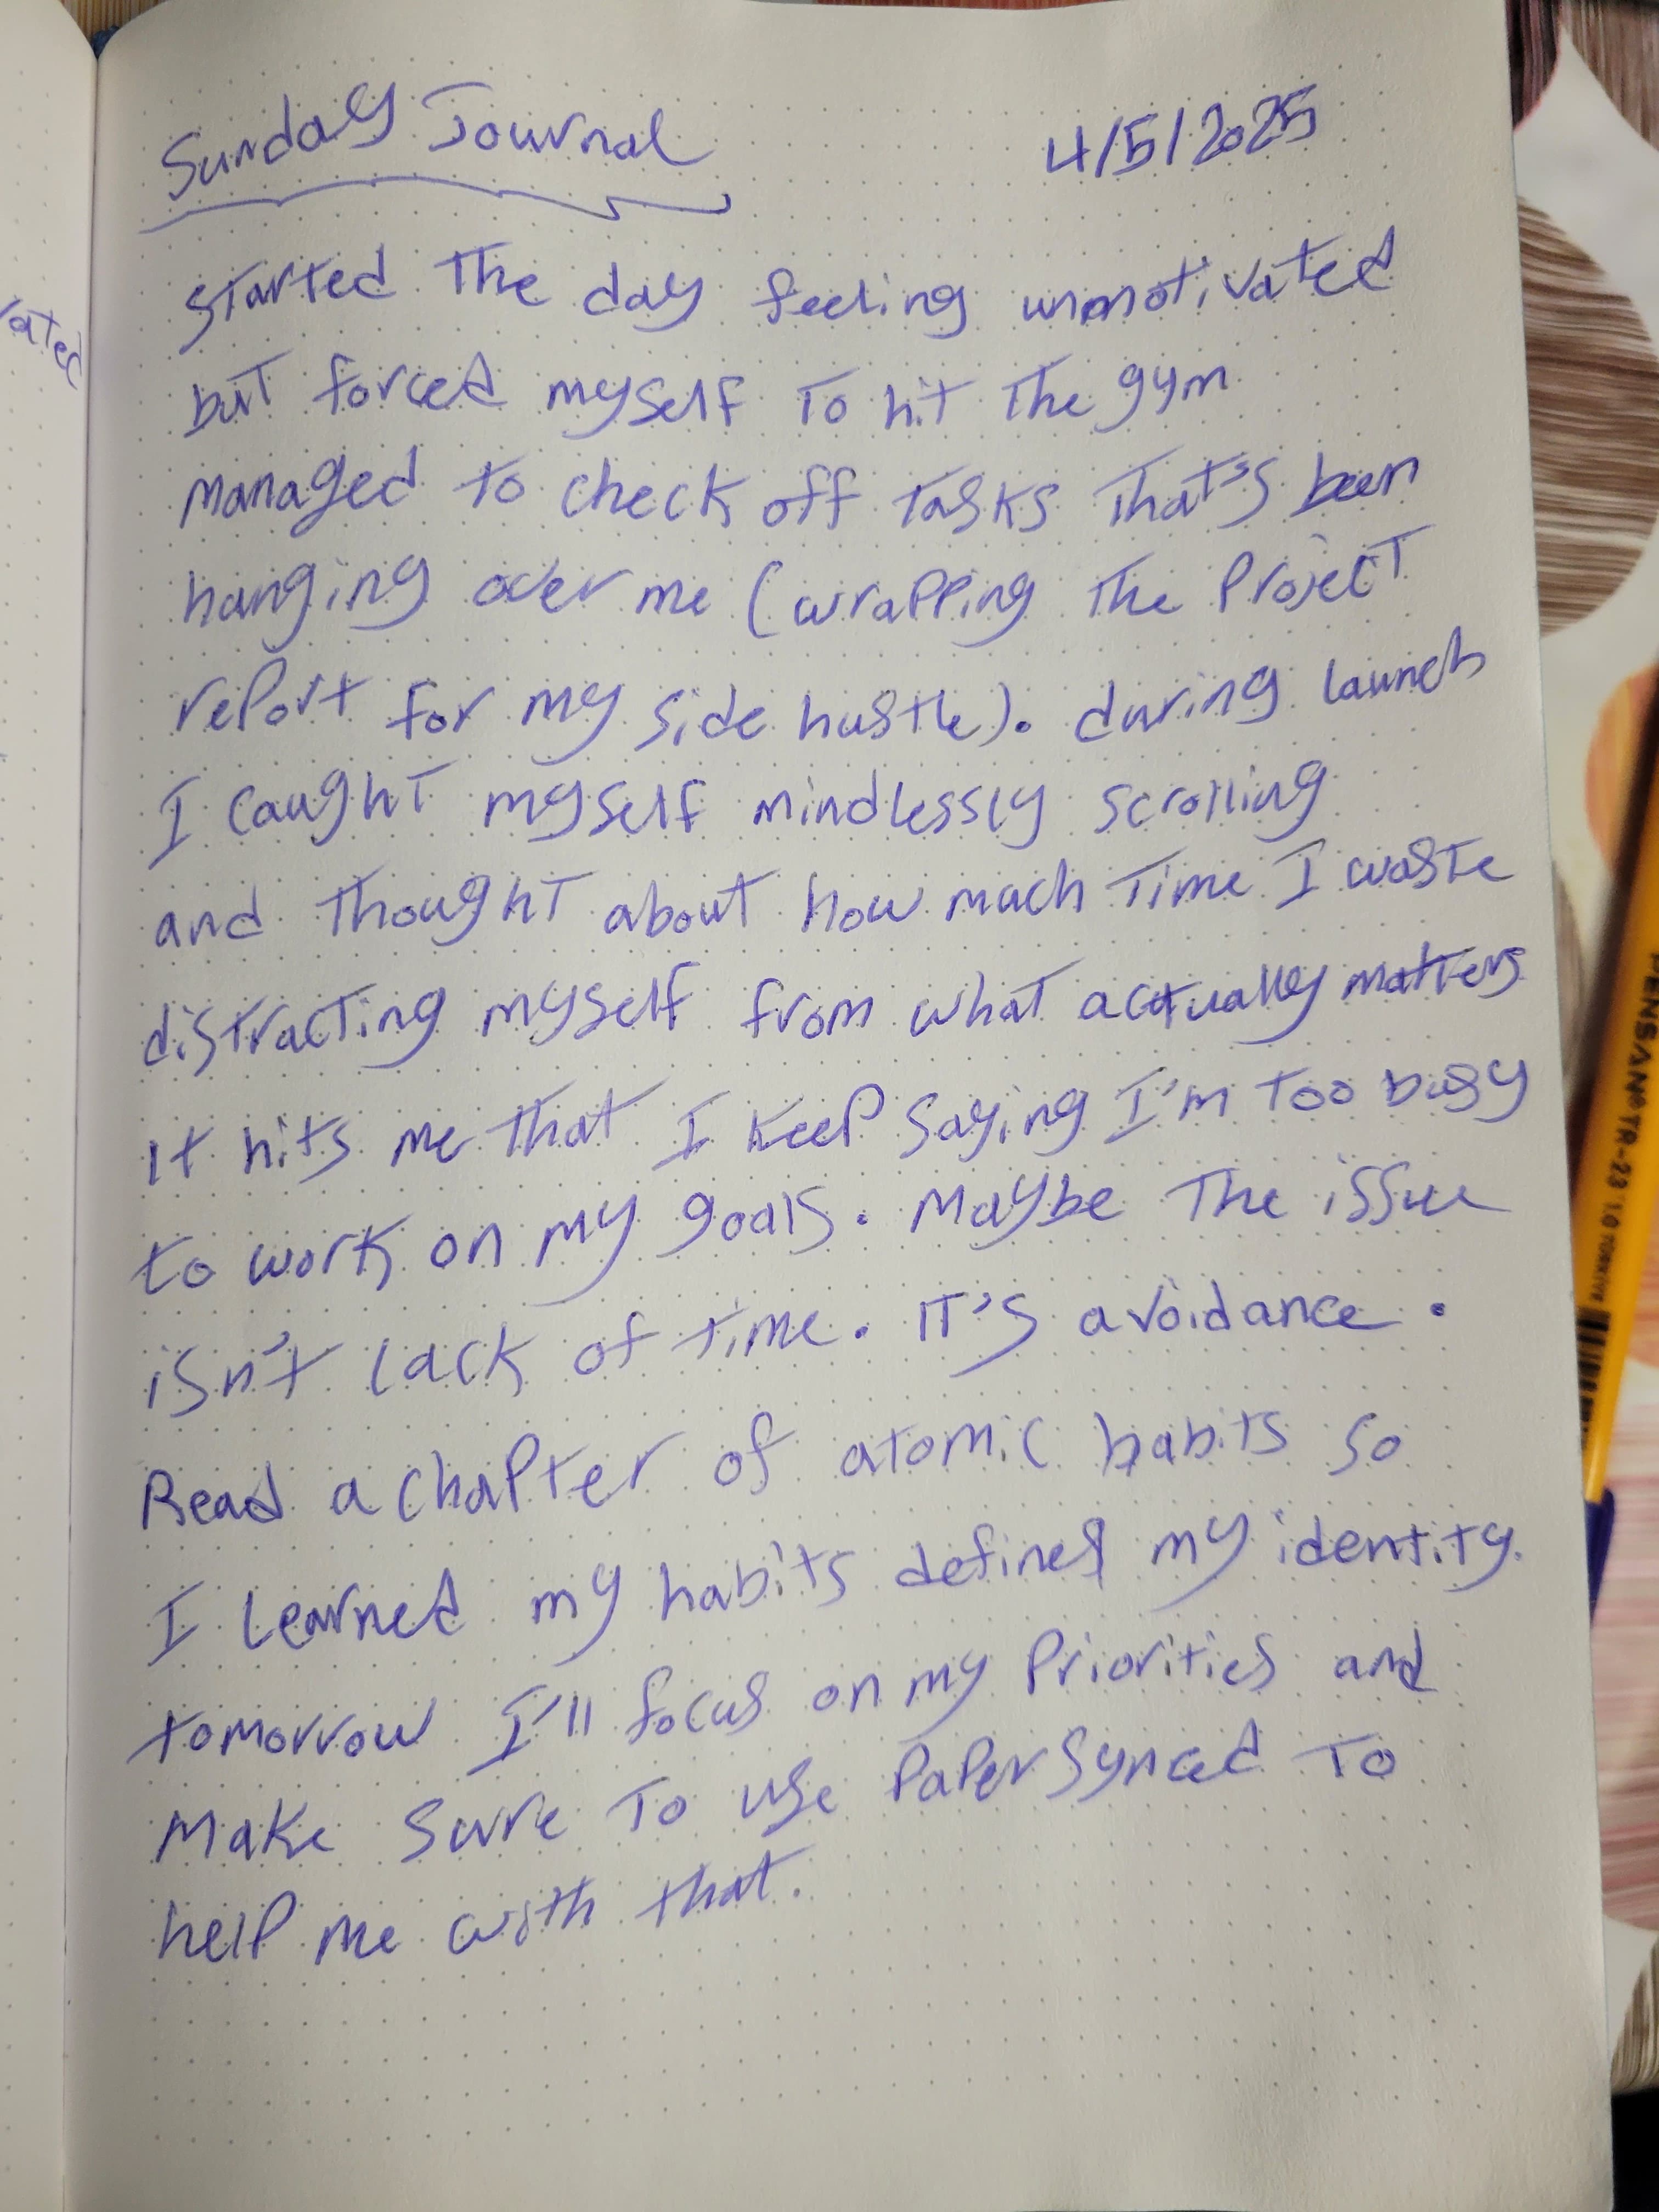 Sunday Journal 4/5/2025
Started The day feeling unmotivated
but forced myself To hit The gym
Managed to check off Tasks That's been
hanging over me (wrapping The Project
report for my side hustle). during launch
I caught myself mindlessly scrolling
and Thought about how much Time I waste
distracting myself from what actually matters
It hits me that I keep saying I'm Too busy
to work on my goals. Maybe The issue
isn't lack of time. IT's avoidance.
Read a chapter of atomic habits so
I learned my habits defines my identity.
tomorrow I'll focus on my Priorities and
Make Sure To use PaperSynced To
help me with that.
PENSAN
TR-23 1.0